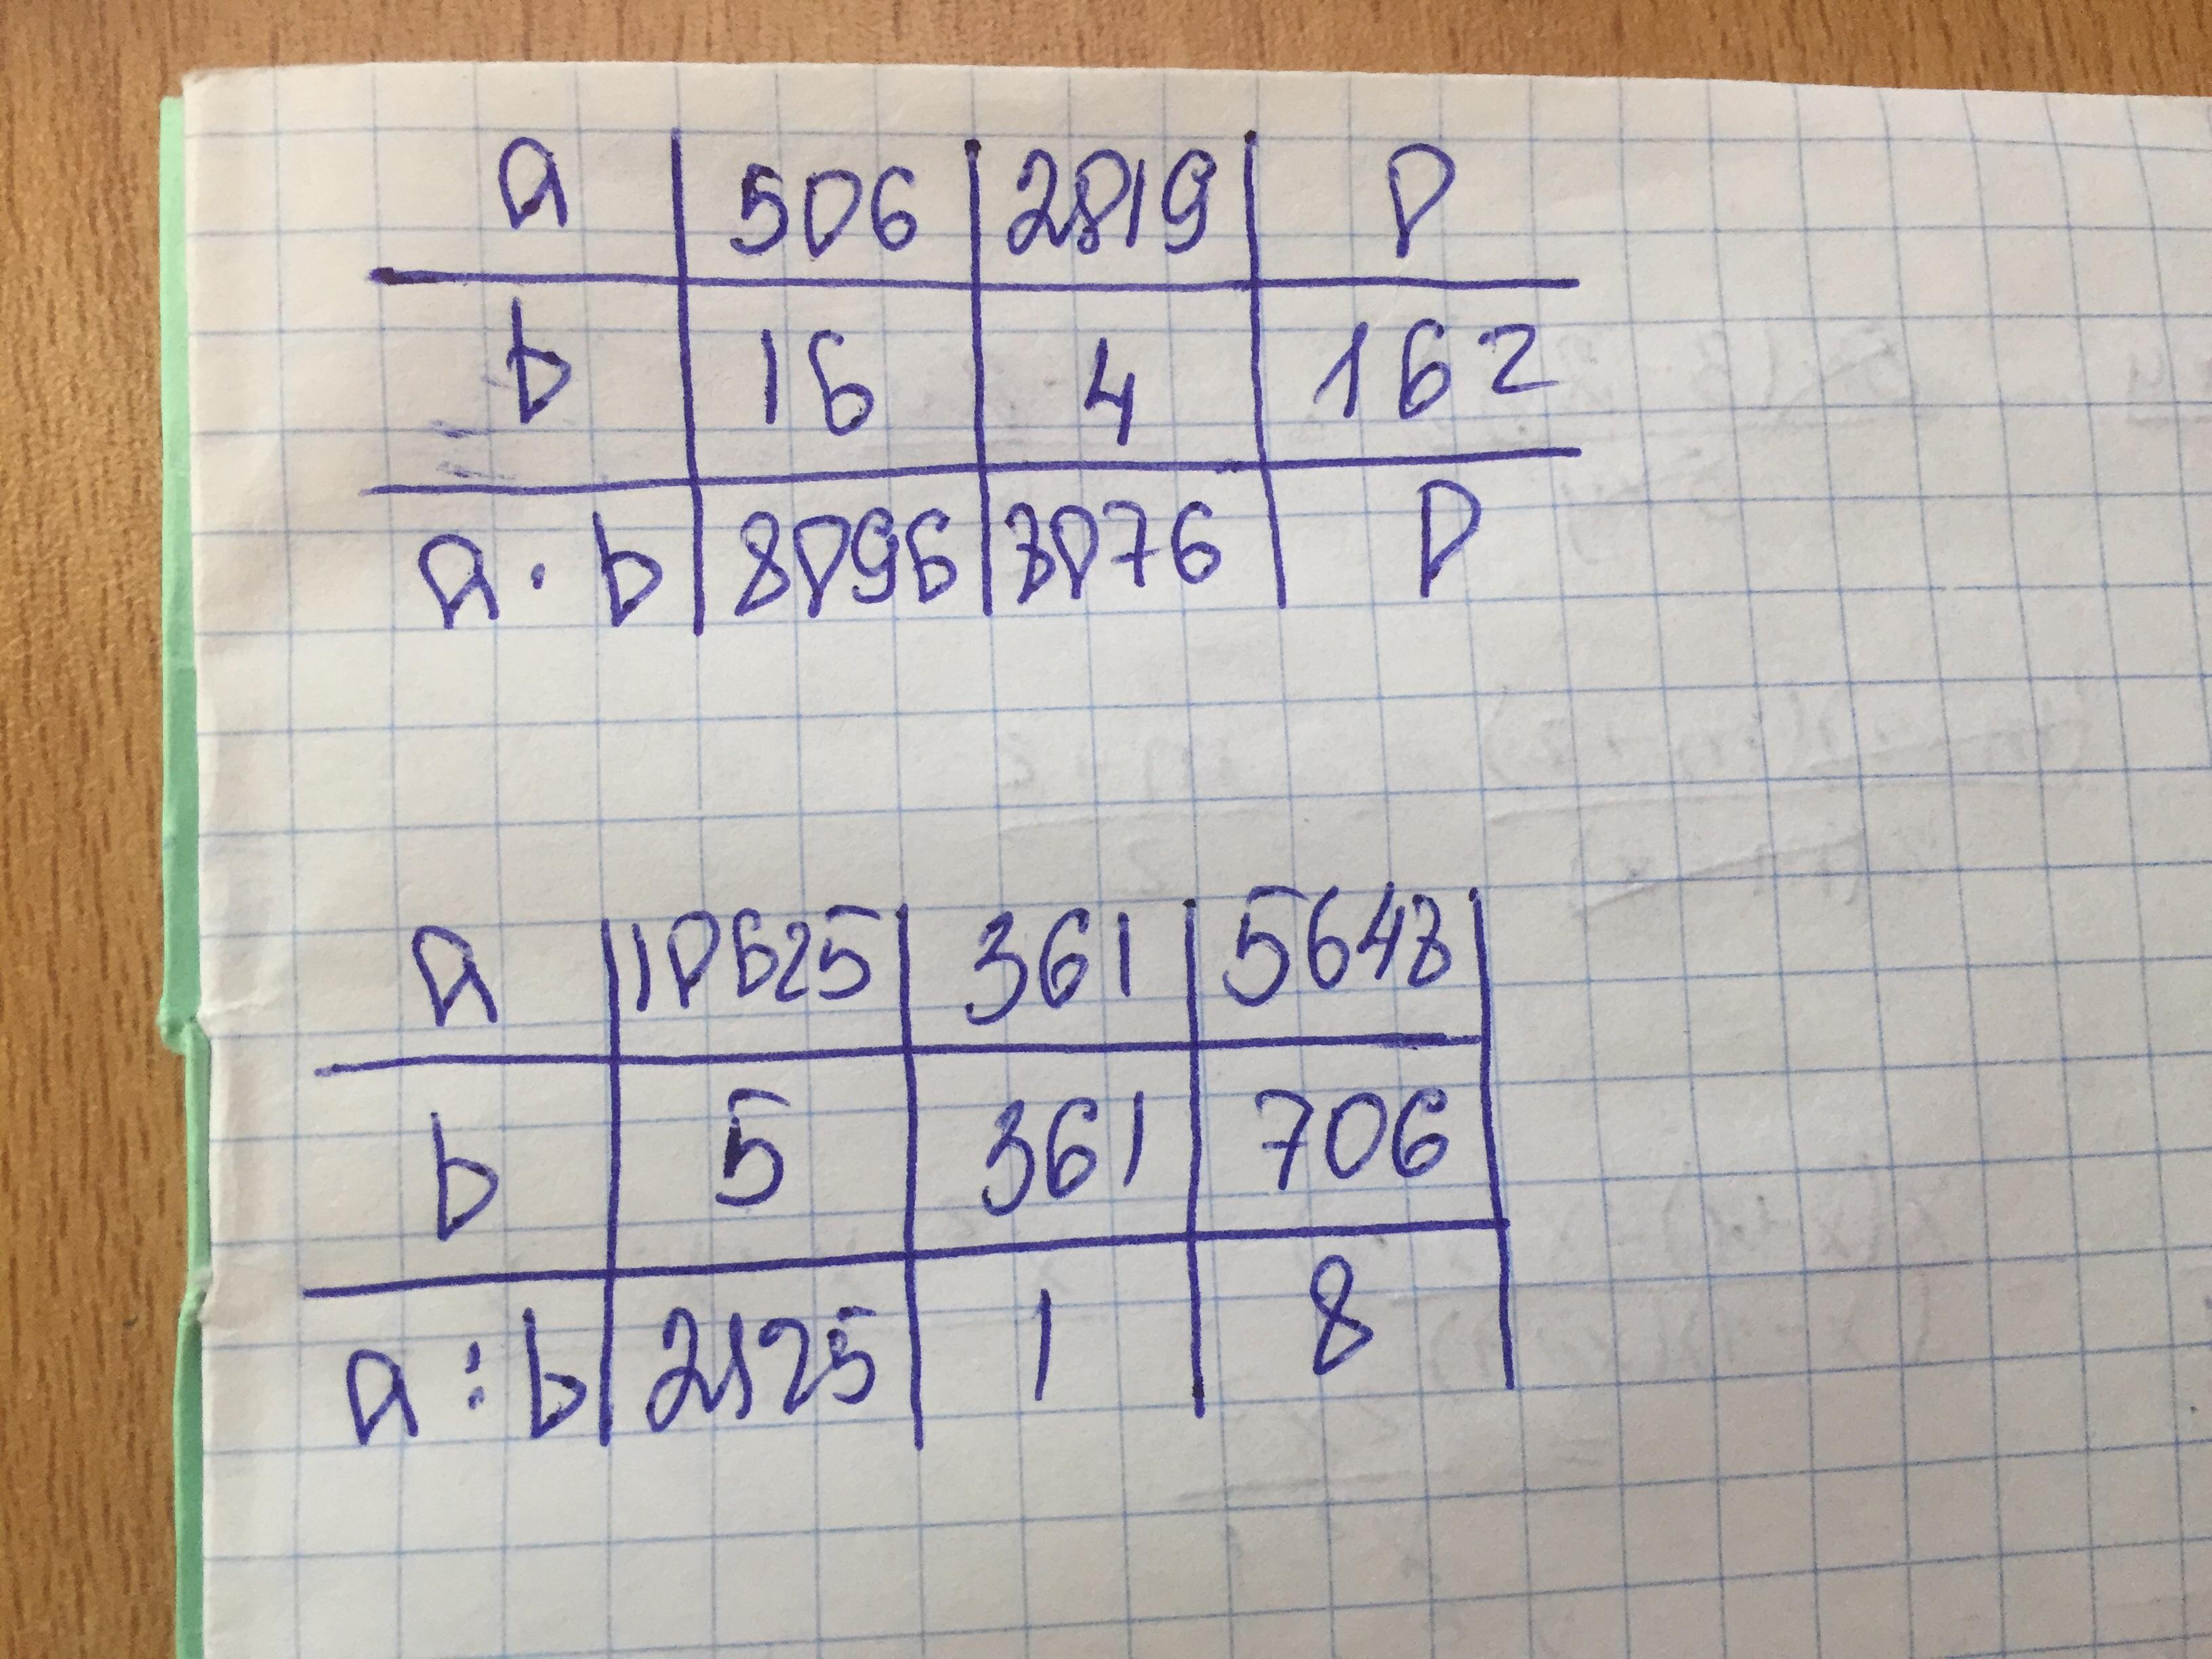 a 506 2019 0
b 16 4 162
a · b 8096 8076 0
a 10625 361 5648
b 5 361 706
a : b 2125 1 8